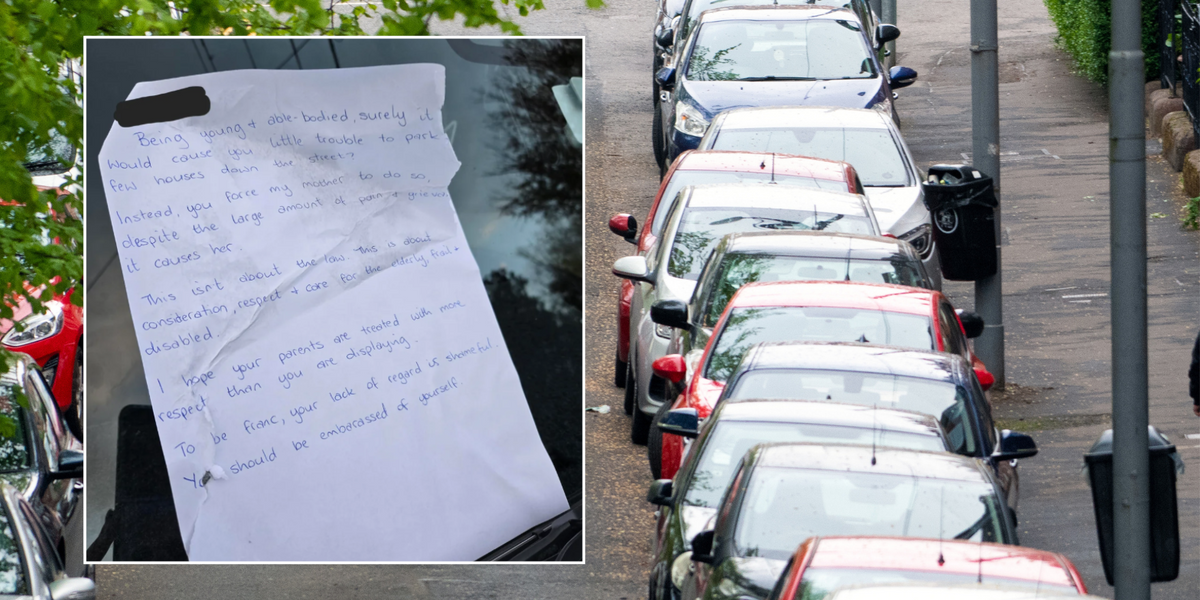 Being young + able-bodied, surely it
would cause you little trouble to park
few houses down the street?
Instead, you force my mother to do so,
despite the large amount of pain +
it causes her.
This isn't about the law. This is about
consideration, respect + care for the elderly, frail +
disabled.
I hope your parents are treated with more
respect than you are displaying.
To be franc, your lack of regard is shameful.
You should be embarassed of yourself.